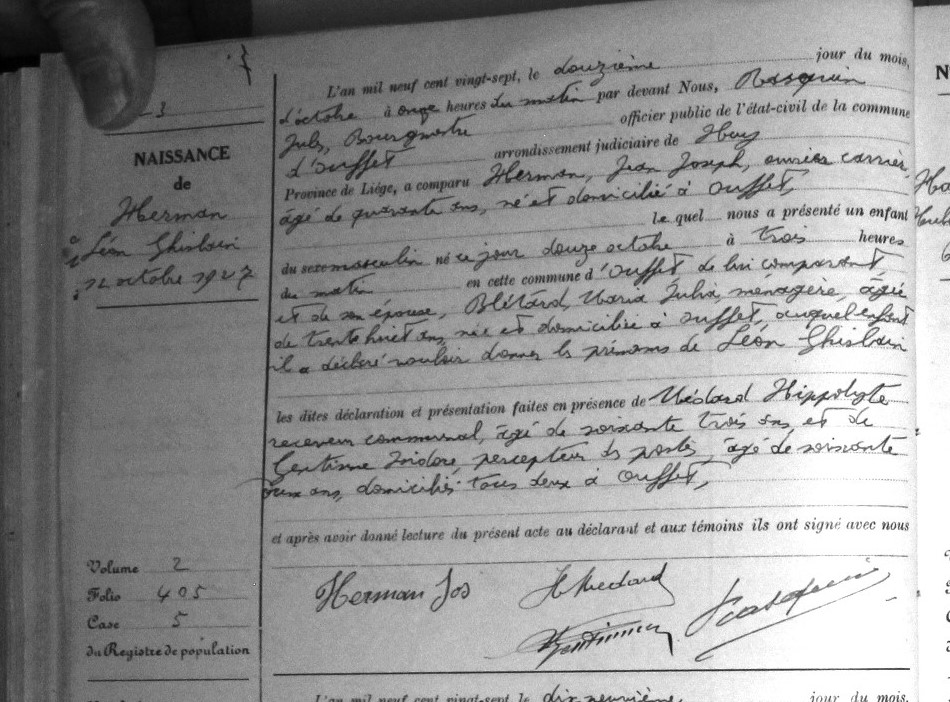 3
NAISSANCE
de
Herman
Léon Ghislain
12 octobre 1927
Volume 2
Folio 405
Case 5
du Registre de population
L'an mil neuf cent vingt-sept, le douzième jour du mois,
d'octobre à onze heures du matin par devant Nous, Rasquin
Jules, Bourgmestre officier public de l'état-civil de la commune
d'Ouffet arrondissement judiciaire de Huy
Province de Liége, a comparu Herman, Jean Joseph, ouvrier carrier,
âgé de quarante ans, né et domicilié à Ouffet,
le quel nous a présenté un enfant
du sexe masculin né ce jour douze octobre à trois heures
du matin en cette commune d'Ouffet de lui comparant
et de son épouse, Blétard, Maria Julia, ménagère, âgée
de trente huit ans, née et domiciliée à Ouffet, auquel enfant
il a déclaré vouloir donner les prénoms de Léon Ghislain
les dites déclaration et présentation faites en présence de Médard Hippolyte
receveur communal, âgé de soixante trois ans et de
Gentinne Isidore, percepteur des postes, âgé de soixante
ans, domiciliés tous deux à Ouffet,
et après avoir donné lecture du présent acte au déclarant et aux témoins ils ont signé avec nous
Herman Jos H Medard Rasquin
Gentinne
L'an mil neuf cent vingt-sept le dix neuvième jour du mois,